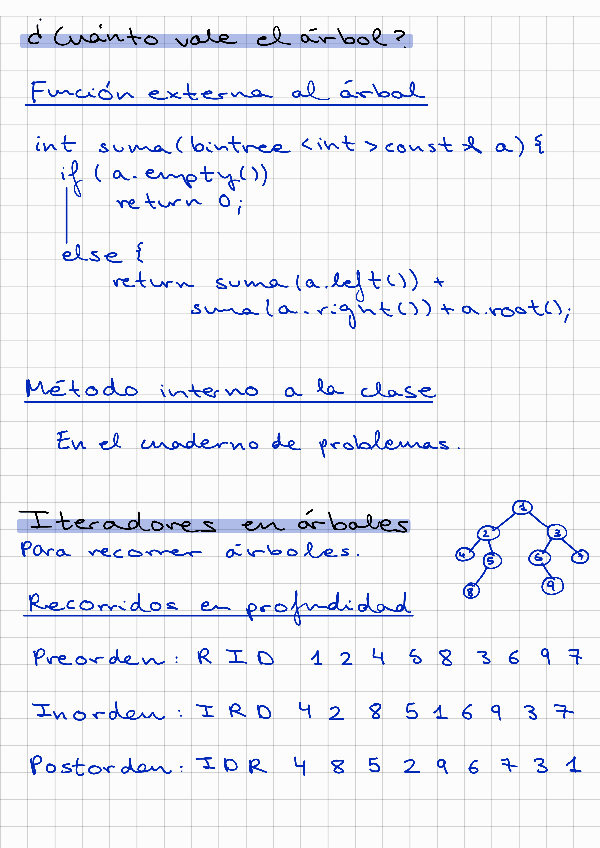 ¿Cuánto vale el árbol?
Función externa al árbol
int suma(bintree <int> const & a) {
if (a.empty())
return 0;
else {
return suma(a.left()) +
suma(a.right()) + a.root();
Método interno a la clase
En el cuaderno de problemas.
Iteradores en árboles
Para recorrer árboles.
1
2 3
4 5 6 7
8 9
Recorridos en profundidad
Preorden: R I D 1 2 4 5 8 3 6 9 7
Inorden: I R D 4 2 8 5 1 6 9 3 7
Postorden: I D R 4 8 5 2 9 6 7 3 1